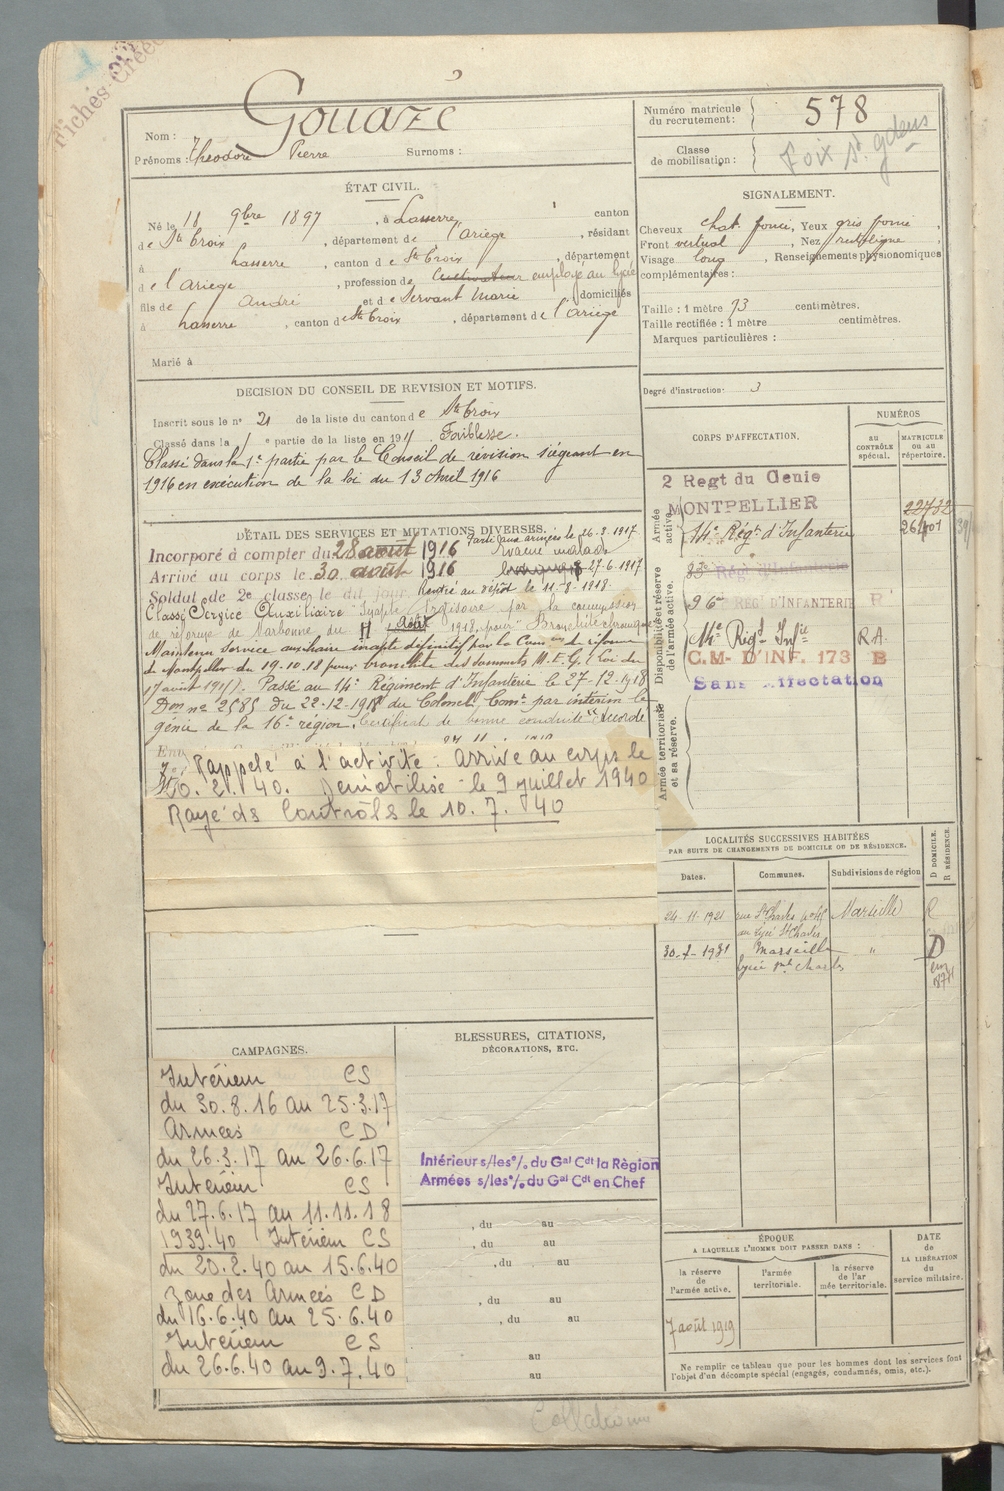 Fichés-Créés
Gouazé
Nom :
Prénoms : Théodore Pierre Surnoms :
Numéro matricule
du recrutement : 578
Classe
de mobilisation :
Foix St gdens
ÉTAT CIVIL.
Né le 18 9bre 1897, à Lasserre, canton
de Ste Croix, département de l'Ariège, résidant
à Lasserre, canton de Ste Croix, département
de l'Ariège, profession de Cultivateur employé au lycée
fils de André et de Servant Marie domiciliés
à Lasserre, canton de Ste Croix, département de l'Ariège
Marié à
SIGNALEMENT.
Cheveux chat. foncé, Yeux gris foncé
Front vertical, Nez rectiligne
Visage long, Renseignements physionomiques
complémentaires :
Taille : 1 mètre 73 centimètres.
Taille rectifiée : 1 mètre centimètres.
Marques particulières :
Degré d'instruction : 3
DECISION DU CONSEIL DE REVISION ET MOTIFS.
Inscrit sous le n° 21 de la liste du canton de Ste Croix
Classé dans la 1e partie de la liste en 191 Faiblesse.
Classé dans la 1e partie par le Conseil de revision siégeant en
1916 en exécution de la loi du 13 Avril 1916
DÉTAIL DES SERVICES ET MUTATIONS DIVERSES.
Parti aux armées le 26.3.1917
Incorporé à compter du 28 août 1916
Evacué malade
27-6-1917
Arrivé au corps le 30 août 1916
Rentré au dépôt le 11-8-1918
Soldat de 2e classe le dit jour
Classé Service Auxiliaire Inapte provisoire par la commission
de réforme de Narbonne du août 1918 pour "Bronchite chronique
Maintenu Service auxiliaire inapte définitif par la Comon de réforme
de Montpellier du 19.10.18 pour bronchite des sommets M.E.G. (Loi du
17 août 1915). Passé au 14e Régiment d'Infanterie le 27-12-1918
Don n° 2585 du 22-12-1918 du Colonel Comt par intérim le
génie de la 16e région. Certificat de bonne conduite "Accordé
Rappelé à l'activité : Arrivé au corps le
20. 2. 40. Démobilisé le 9 juillet 1940
Rayé des Contrôles le 10.7.40
CORPS D'AFFECTATION.
NUMÉROS
AU CONTRÔLE SPÉCIAL.
MATRICULE OU AU RÉPERTOIRE.
Armée active.
2 Regt du Genie
MONTPELLIER
22732
14e Régt d'Infanterie 26401
Disponibilité et réserve de l'armée active.
83e Régt d'Infanterie
96e REGt D'INFANTERIE R
14e Régt Infie R.A.
C.M. D'INF. 173 B
Sans Affectation
Armée territoriale et sa réserve.
LOCALITÉS SUCCESSIVES HABITÉES
PAR SUITE DE CHANGEMENTS DE DOMICILE OU DE RÉSIDENCE.
Dates. Communes. Subdivisions de région
D DOMICILE. R RÉSIDENCE.
24-11-1921 rue St Charles Marseille R
au Lycée St Charles
30-7-1931 Marseille " D
lycée St Charles
CAMPAGNES.
Intérieur CS
du 30.8.16 au 25.3.17
Armées CD
du 26.3.17 au 26.6.17
Intérieur CS
du 27.6.17 au 11.11.18
1939.40 Intérieur CS
du 20.2.40 au 15.6.40
Zone des Armées CD
du 16.6.40 au 25.6.40
Intérieur CS
du 26.6.40 au 9.7.40
BLESSURES, CITATIONS,
DÉCORATIONS, ETC.
Intérieur s/les°/. du Gal Cdt la Règion
Armées s/les°/. du Gal Cdt en Chef
, du au
, du au
, du au
, du au
, du au
au
au
ÉPOQUE
A LAQUELLE L'HOMME DOIT PASSER DANS :
la réserve de l'armée active.
l'armée territoriale.
la réserve de l'ar mée territoriale.
DATE de LA LIBÉRATION du service militaire.
7 août 1919
Ne remplir ce tableau que pour les hommes dont les services font
l'objet d'un décompte spécial (engagés, condamnés, omis, etc.).